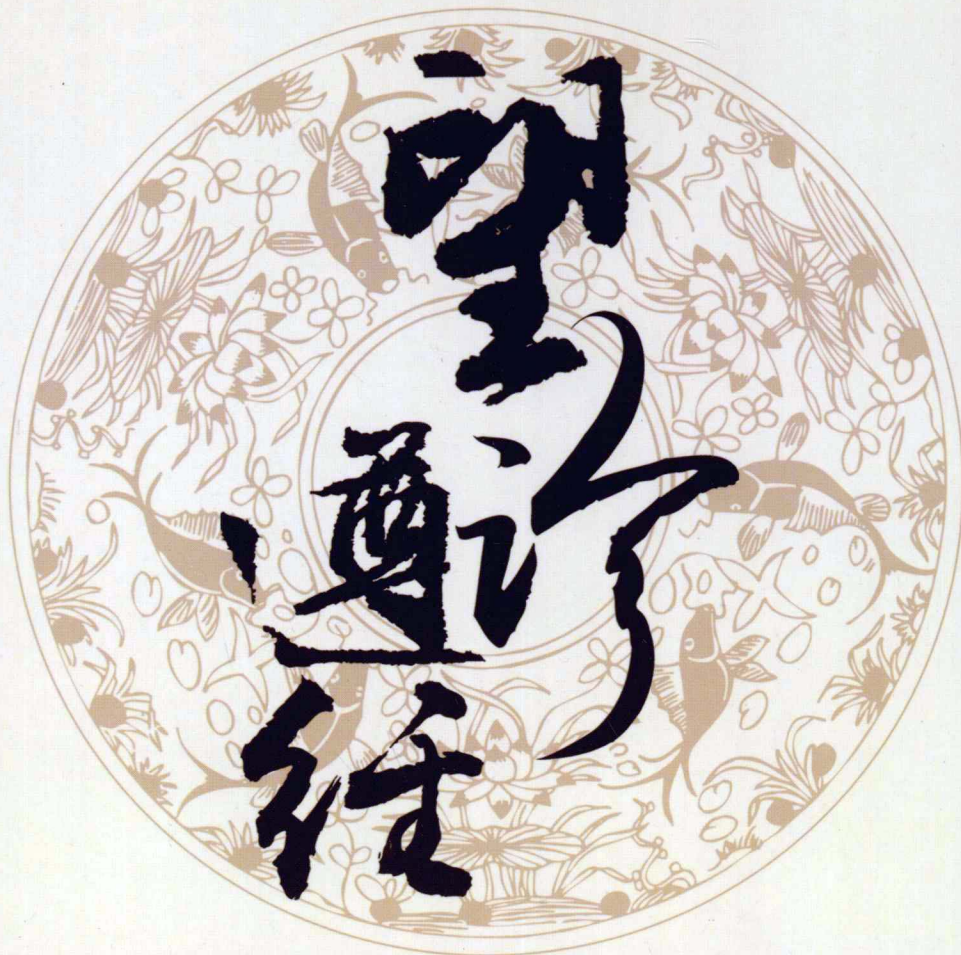 望诊
遵经